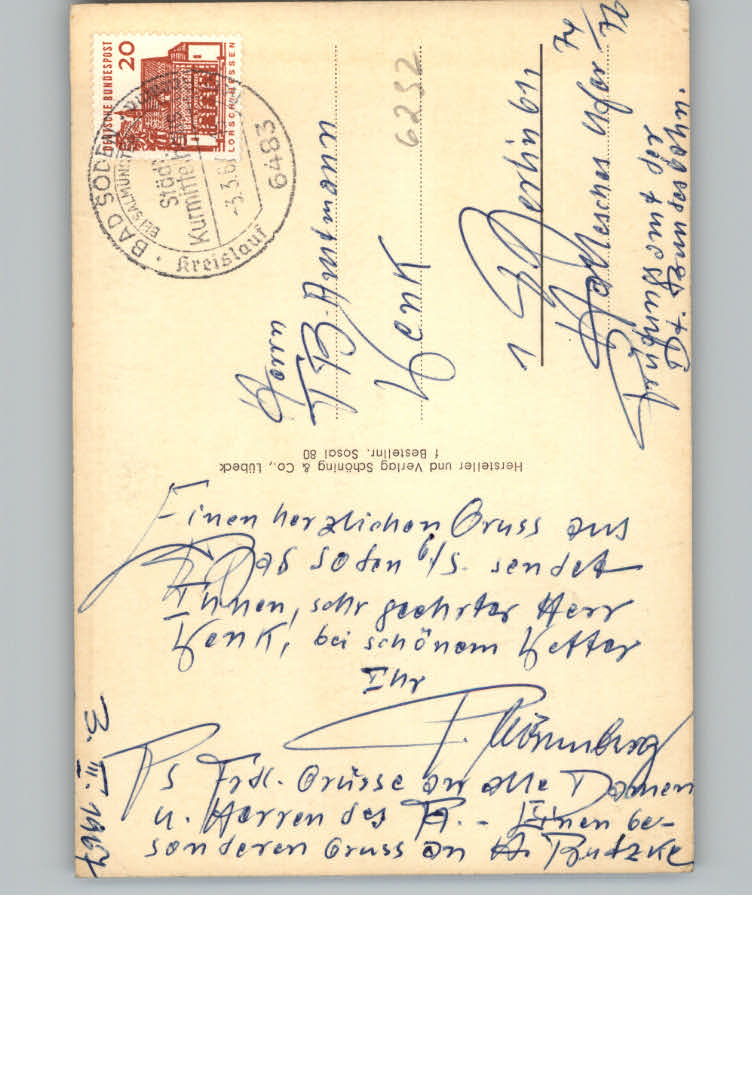 Einen herzlichen Gruss aus
Bad Soden b/S. sendet
Ihnen, sehr geehrter Herr
Henk, bei schönem Wetter
Ihr
Ps Frdl. Grüsse an alle Damen
u. Herren des PA. - Einen be-
sonderen Gruss an H. Rutzke
3. III. 1967
Hersteller und Verlag Schöning & Co., Lübeck
f Bestellnr. Sosal 80
DEUTSCHE BUNDESPOST
20
LORSCH/HESSEN
BAD SODEN
BEI SALMÜNSTER
Kurmittel
-3.3.6
Kreislauf
6483
6252
Herrn
Amtmann
Henk
1 Berlin 611
Hallesches Ufer 74/76